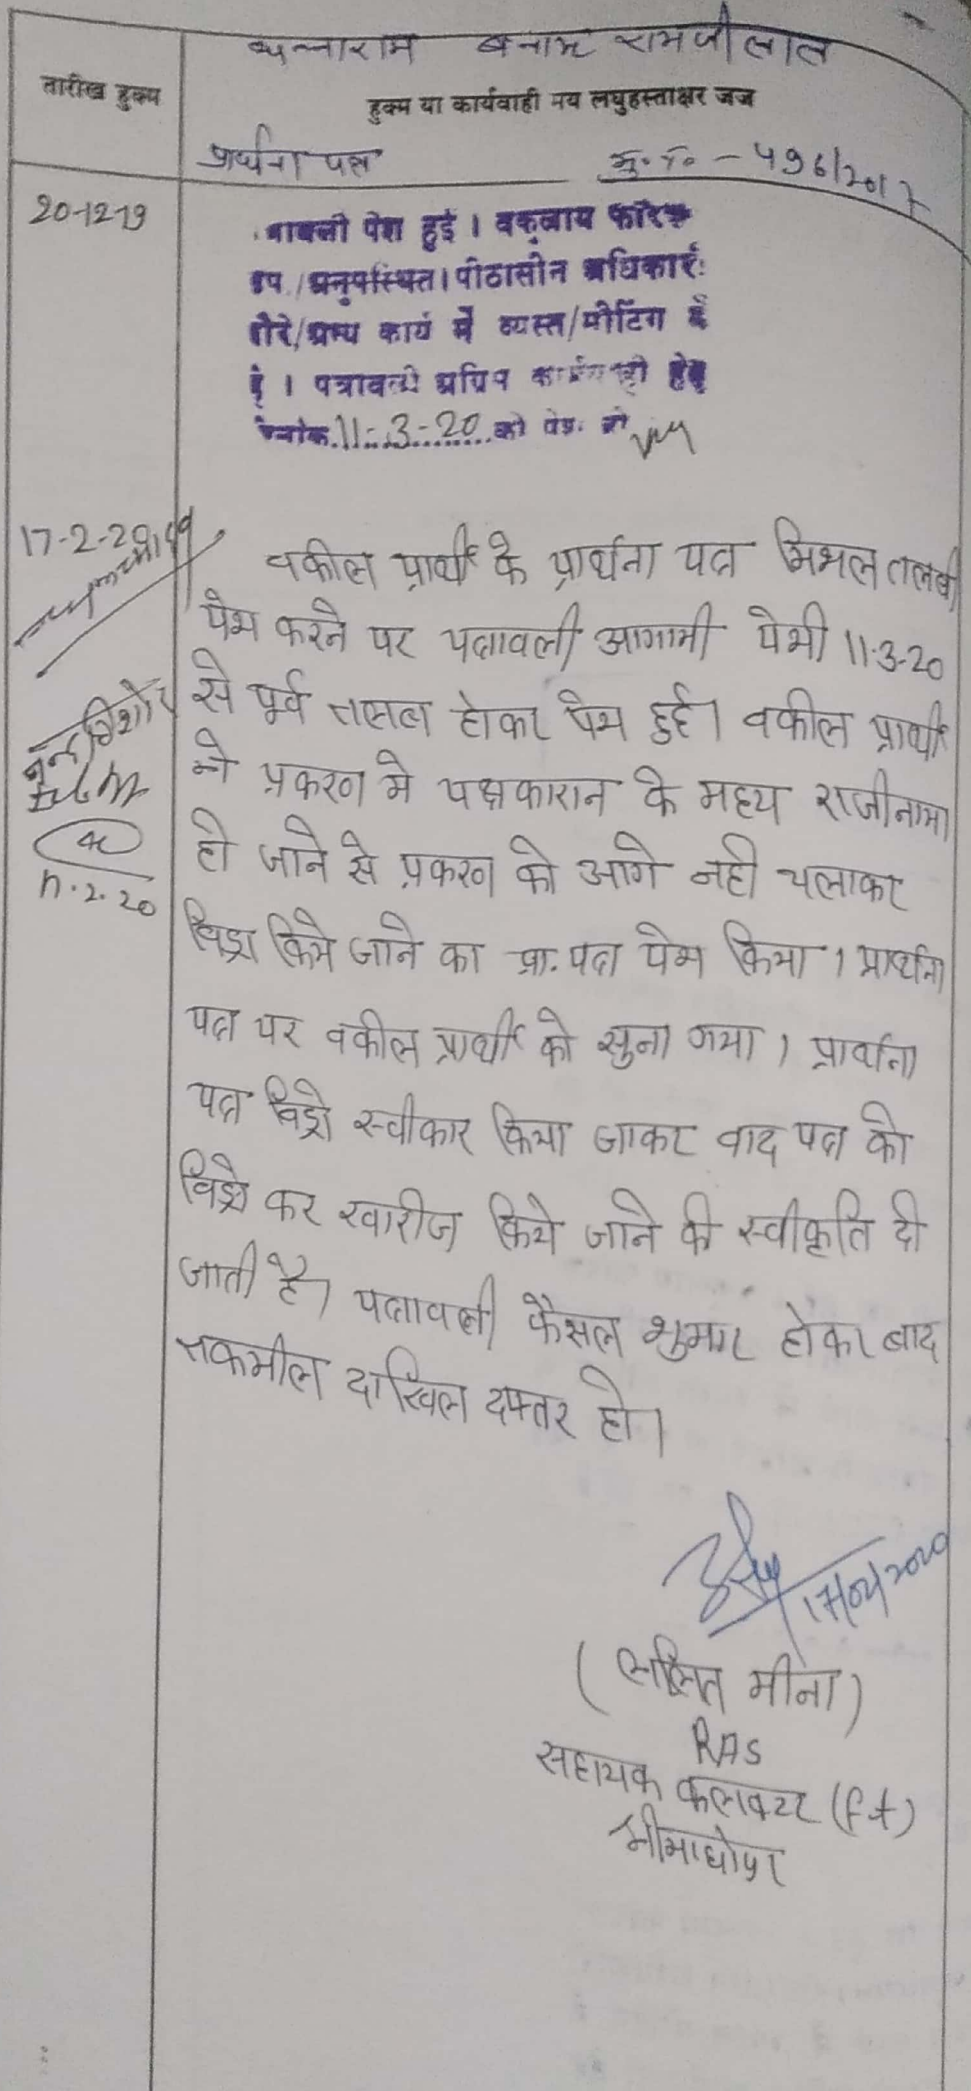 धन्नाराम बनाम रामजीलाल
तारीख हुक्म
हुक्म या कार्यवाही मय लघुहस्ताक्षर जज
प्रार्थना पत्र
मु. नं. - 496/2017
20-12-19
पत्रावली पेश हुई । वकलाय फरिक
उप./अनुपस्थित। पीठासीन अधिकारी
दौरे/अन्य कार्य में व्यस्त/मीटिंग में
है । पत्रावली अग्रिम कार्यवाही हेतु
दिनांक 11-3-20 को पेश हो
17-2-20
वकील प्रार्थी के प्रार्थना पत्र मिशल तलबी
पेश करने पर पत्रावली आगामी पेशी 11-3-20
से पूर्व तलब होकर पेश हुई। वकील प्रार्थी
ने प्रकरण मे पक्षकारान के मध्य राजीनामा
हो जाने से प्रकरण को आगे नही चलाकर
विड्रा किये जाने का प्रा. पत्र पेश किया । प्रार्थना
पत्र पर वकील प्रार्थी को सुना गया । प्रार्थना
पत्र विड्रो स्वीकार किया जाकर वाद पत्र को
विड्रो कर खारीज किये जाने की स्वीकृति दी
जाती है। पत्रावली फैसल शुमार होकर बाद
तकमील दाखिल दफ्तर हो।
17.2.20
17/02/2020
(ललित मीना)
RAS
सहायक कलक्टर (Ft)
श्रीमाधोपुर